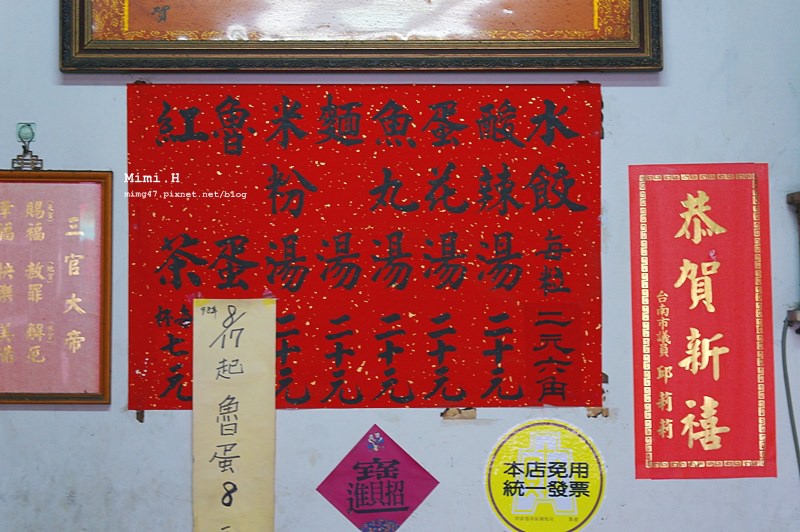 賀
水餃 每粒 二元六角
酸辣湯 二十元
蛋花湯 二十元
魚丸湯 二十元
麵湯 二十元
米粉湯 二十元
魯蛋
紅茶 每杯 七元
8/17起 魯蛋8
恭賀新禧
台南市議員 邱莉莉
三官大帝
賜福 赦罪 解厄
幸福 快樂 美滿
招財進寶
本店免用
統一發票
Mimi.H
mimg47.pixnet.net/blog